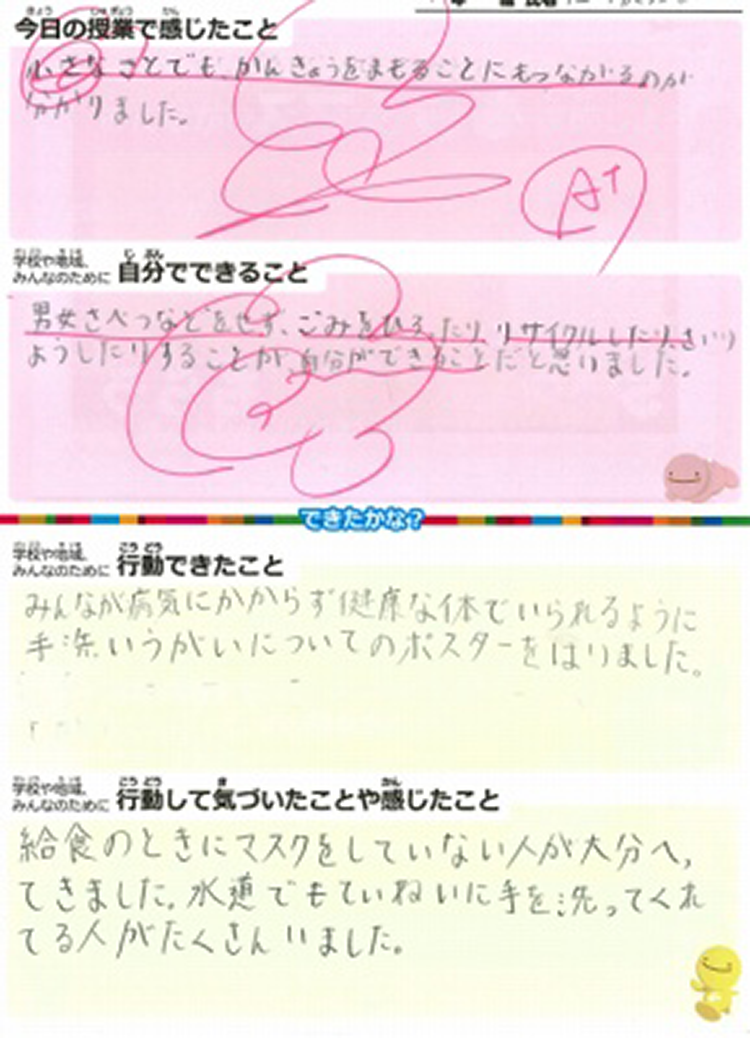 今日の授業で感じたこと
小さなことでも、かんきょうをまもることにもつながるのが
分かりました。
A+
学校や地域、
みんなのために 自分でできること
男女さべつなどをせず、ごみをひろったり、リサイクルしたり、さいり
ようしたりすることが、自分ができることだと思いました。
できたかな?
学校や地域、
みんなのために 行動できたこと
みんなが病気にかからず健康な体でいられるように
手洗いうがいについてのポスターをはりました。
学校や地域、
みんなのために 行動して気づいたことや感じたこと
給食のときにマスクをしていない人が大分へっ
てきました。水道でもていねいに手を洗ってくれ
てる人がたくさんいました。